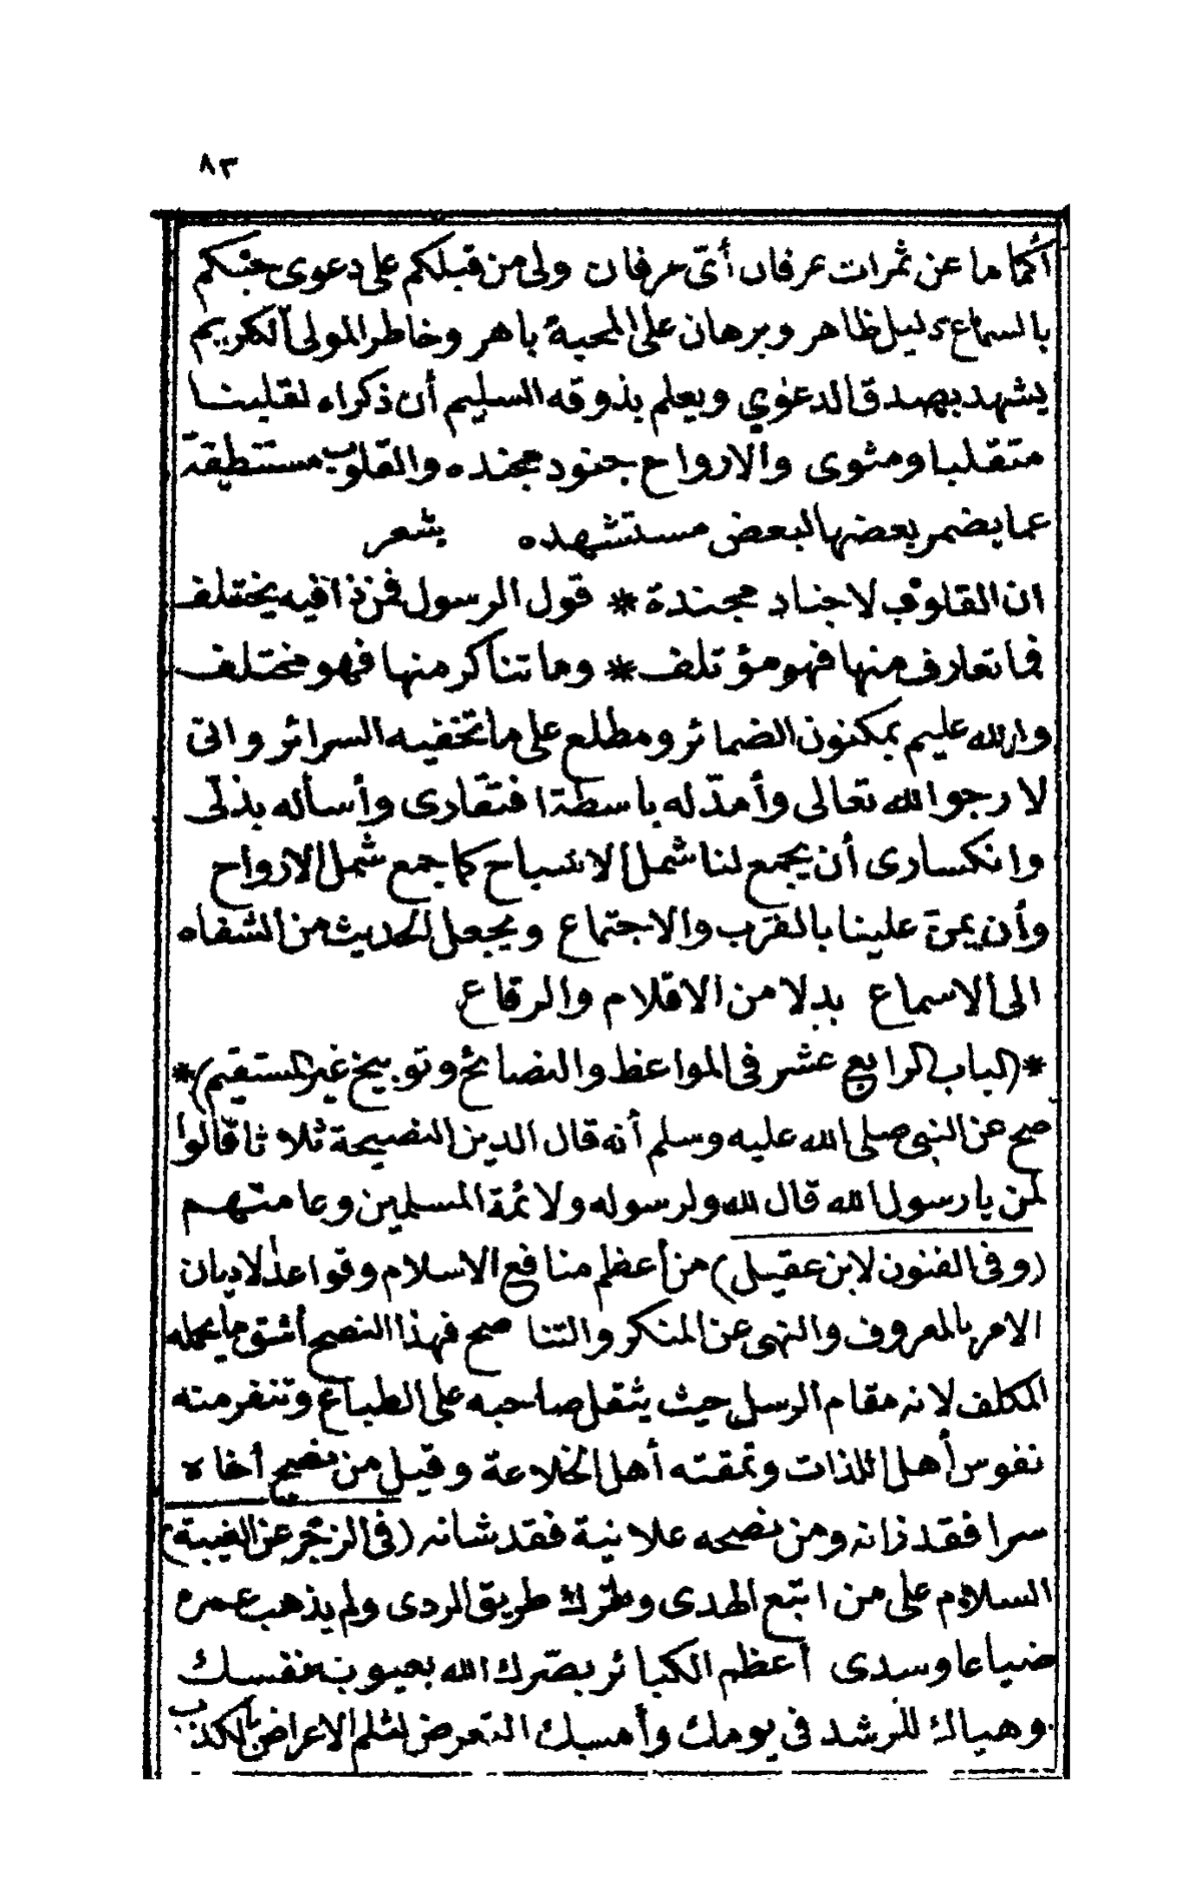 ٨٣
أكماما عن ثمرات عرفان أىّ عرفان ولى من قبلكم على دعوى حبكم
بالسماع دليل ظاهر وبرهان على المحبة باهر وخاطر المولى الكريم
يشهد بصدق الدعوى ويعلم بذوقه السليم أن ذكراه لقلبنا
متقلبا ومثوى والارواح جنود مجنده والقلوب مستنطقة
عما يضمر بعضها لبعض مستشهده شعر
ان القلوب لاجناد مجندة * قول الرسول فمن ذا فيه يختلف
فما تعارف منها فهو مؤتلف * وما تناكر منها فهو مختلف
والله عليم بمكنون الضمائر ومطلع على ما تخفيه السرائر وانى
لارجو الله تعالى وأمدّ له باسطة افتقارى وأسأله بذلّى
وانكسارى أن يجمع لنا شمل الاشباح كما جمع شمل الارواح
وأن يمنّ علينا بالقرب والاجتماع ويجعل الحديث من الشفاه
الى الاسماع بدلا من الاقلام والرقاع
*(الباب الرابع عشر فى المواعظ والنصائح وتوبيخ غير المستقيم)*
صح عن النبى صلى الله عليه وسلم أنه قال الدين النصيحة ثلاثا قالوا
لمن يا رسول الله قال لله ولرسوله ولائمة المسلمين وعامتهم
(وفى الفنون لابن عقيل) من أعظم منافع الاسلام وقواعد الاديان
الامر بالمعروف والنهى عن المنكر والتناصح فهذا النصح أشق ما يحمله
المكلف لانه مقام الرسل حيث يثقل صاحبه على الطباع وتنفر منه
نفوس أهل اللذات وتمقته أهل الخلاعة وقيل من نصح أخاه
سرا فقد زانه ومن نصحه علانية فقد شانه (فى الزجر عن الغيبة)
السلام على من اتبع الهدى وترك طريق الردى ولم يذهب عمره
ضياعا وسدى أعظم الكبائر بصّرك الله بعيوب نفسك
وهياك للرشد فى يومك وأمسك التعرض لثلم الاعراض بالكذب